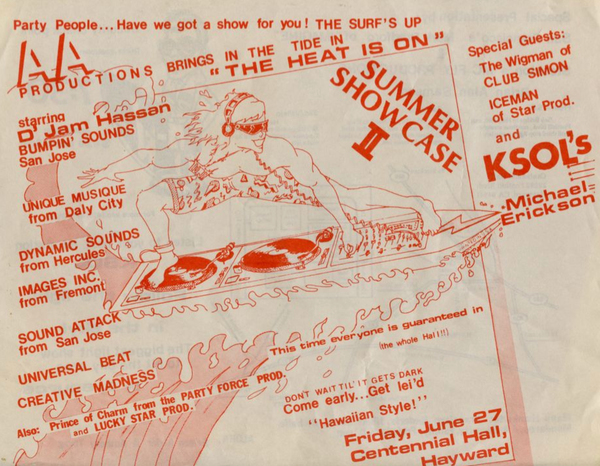 Party People...Have we got a show for you! THE SURF'S UP
AA
PRODUCTIONS
BRINGS IN THE TIDE IN
"THE HEAT IS ON"
SUMMER
SHOWCASE
II
Special Guests:
The Wigman of
CLUB SIMON
ICEMAN
of Star Prod.
and
KSOL's
Michael
Erickson
starring
D'Jam Hassan
BUMPIN' SOUNDS
San Jose
UNIQUE MUSIQUE
from Daly City
DYNAMIC SOUNDS
from Hercules
IMAGES INC.
from Fremont
SOUND ATTACK
from San Jose
UNIVERSAL BEAT
CREATIVE MADNESS
Also: Prince of Charm from the PARTY FORCE PROD.
and LUCKY STAR PROD.
This time everyone is guaranteed in
(the whole Hall!!)
DONT WAIT TIL' IT GETS DARK
Come early...Get lei'd
"Hawaiian Style!"
Friday, June 27
Centennial Hall,
Hayward